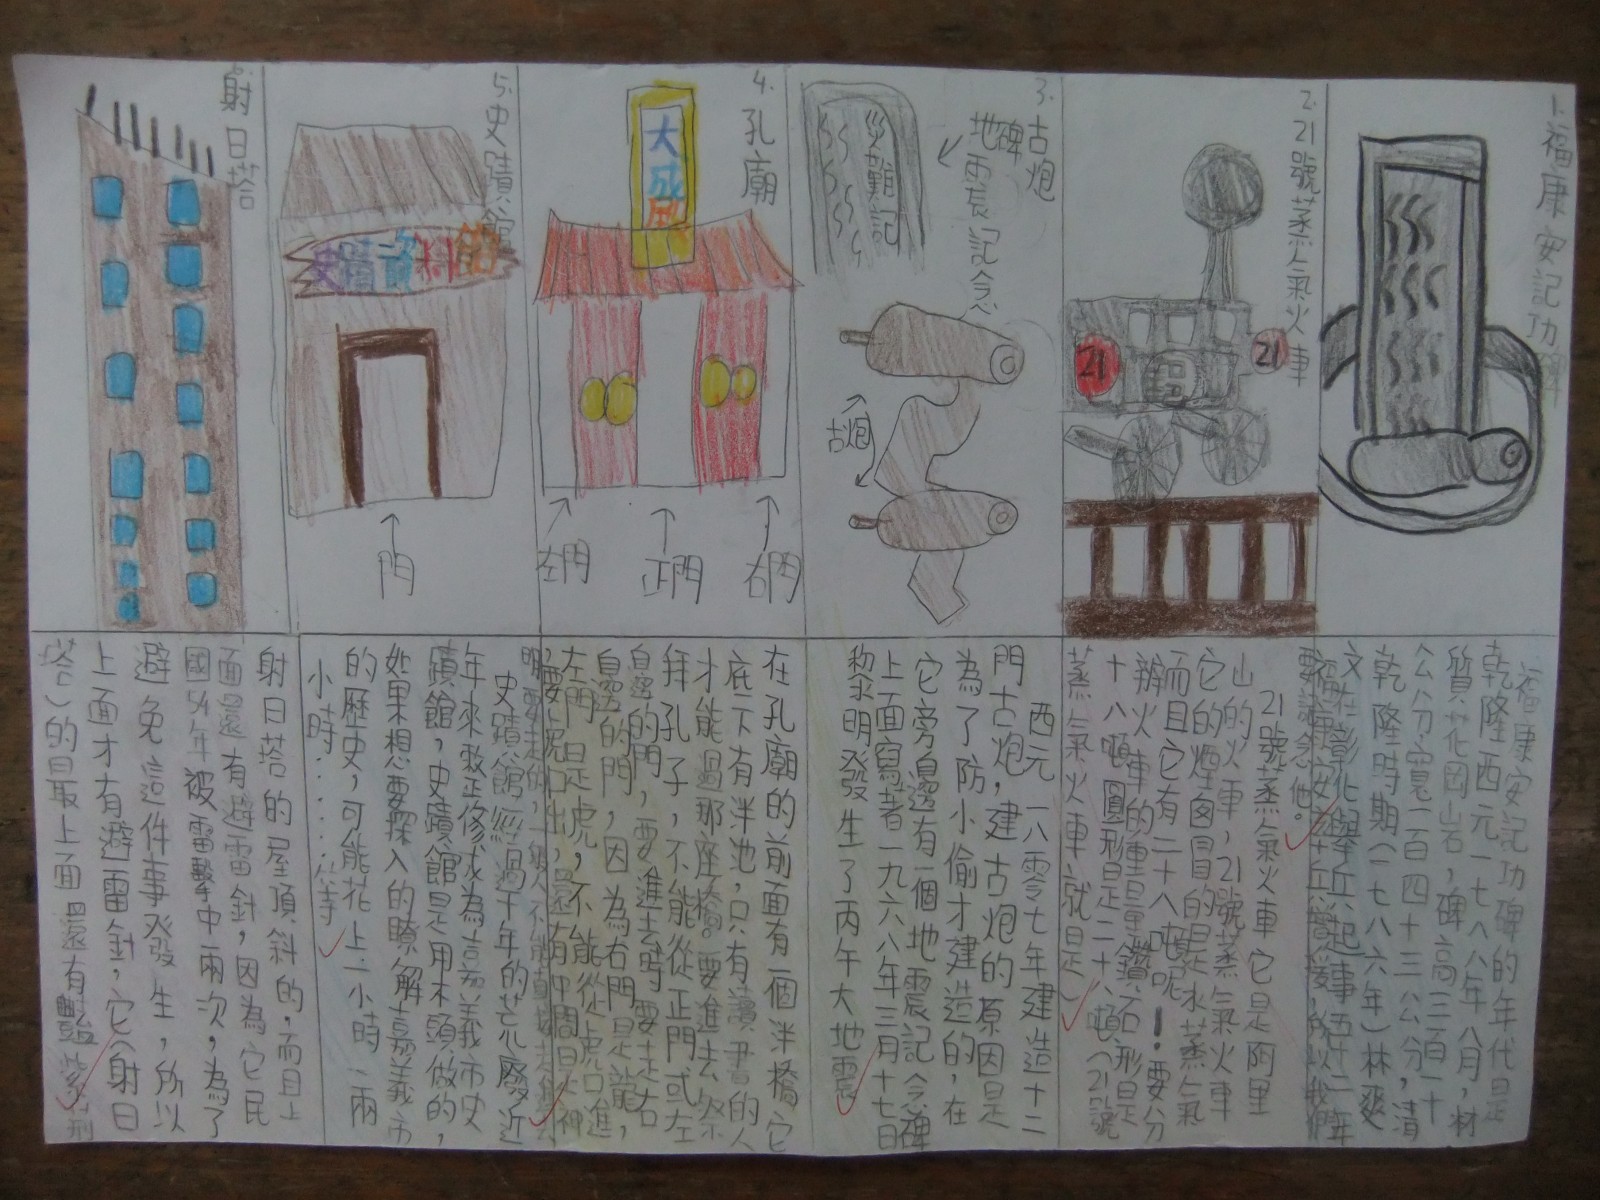 1.福康安記功碑
2.21號蒸氣火車
21
21
3.古炮
地震記念碑
災難記
古炮
4.孔廟
大成殿
左門
正門
右門
5.史蹟館
史蹟資料館
門
射日塔
福康安記功碑的年代是
乾隆西元一七八八年八月,材
質花岡岩,碑高三百一十
公分,寬一百四十三公分,清
乾隆時期(一七八六年)林爽
文在彰化舉兵起事五十二年
所以我們
要記念他。
21號蒸氣火車它是阿里
山的火車,21號蒸氣火車
它的煙囪冒的是水蒸氣
而且它有二十八噸呢!要分
辦火車的重量鑽石形是
十八噸圓形是二十八噸(21號
蒸氣火車就是)
西元一八零七年建造十二
門古炮,建古炮的原因是
為了防小偷才建造的,在
它旁邊有一個地震記念碑
上面寫著一九六八年三月十七日
黎明發生了丙午大地震
在孔廟的前面有一個泮橋它
底下有泮池,只有讀書的人
才能過那座橋。要進去祭
拜孔子,不能從正門或左
邊的門,要進去時要走右
邊的門,因為右門是龍,
左門是虎,不能從虎口進
要虎口出,還有中間是神
明要走的,一般人不能直接走進去
史蹟館經過十年的荒廢近
年來敢整修成為嘉義市史
蹟館,史蹟館是用木頭做的,
如果想要探入的瞭解嘉義市
的歷史,可能花上一小時:兩
小時……等
射日塔的屋頂斜的,而且上
面還有避雷針,因為它民
國54年被雷擊中兩次,為了
避免這件事發生,所以
上面才有避雷針,它(射日
塔)的最上面還有